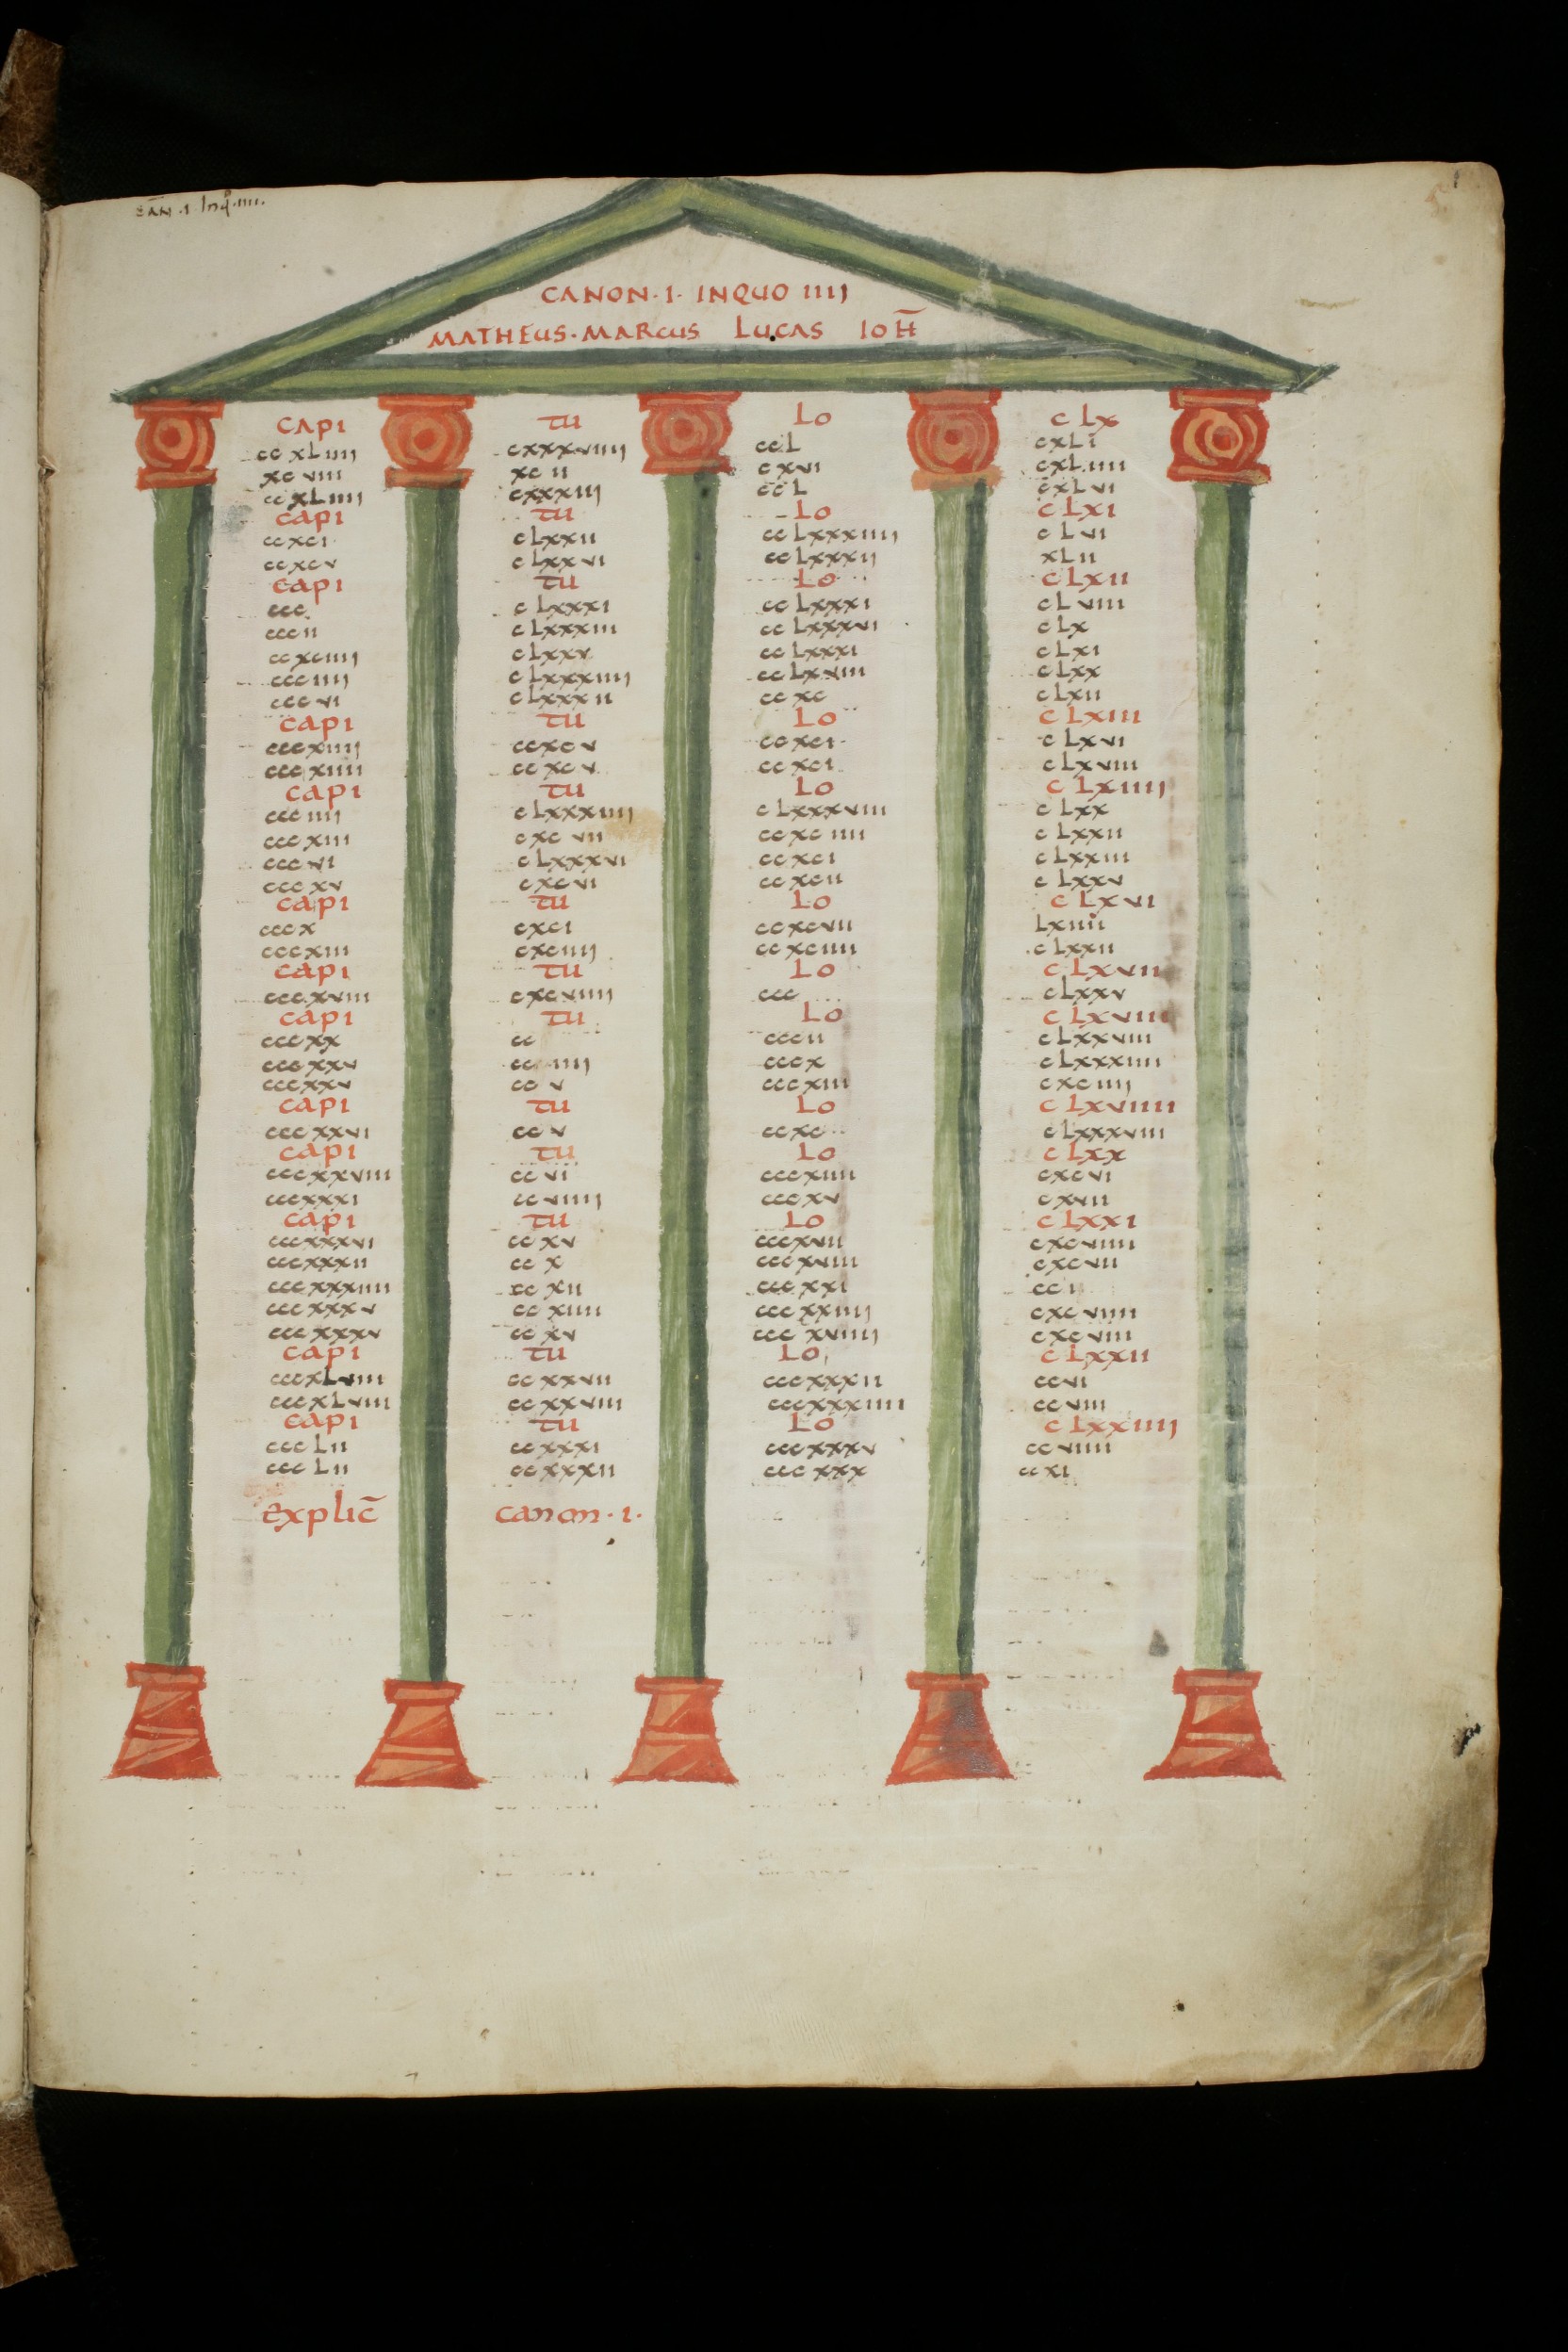 CAN̄ ·I· INQ̊ ·IIII·
CANON·I· INQUO IIII
MATHEUS·MARCUS LUCAS IOH̄
CAPI TU LO CLX
CCXLIIII CXXXVIIII CCL CXLI
XCVIII XCII CXVI CXLIIII
CCXLIIII CXXXIII CCL CXLVI
CAPI TU LO CLXI
CCXCI CLXXII CCLXXXIIIII CLVI
CCXCV CLXXVI CCLXXXII XLII
CAPI TU LO CLXII
CCC CLXXXI CCLXXXI CLVIII
CCCII CLXXXIII CCLXXXVI CLX
CCXCIIII CLXXV CCLXXXI CLXI
CCCIIII CLXXXIIII CCLXVIII CLXX
CCCVI CLXXXII CCXC CLXII
CAPI TU LO CLXIII
CCCXIIII CCXCV CCXCI CLXVI
CCCXIIII CCXCV CCXCI CLXVIII
CAPI TU LO CLXIIII
CCCIIII CLXXXIIII CLXXXVIII CLXX
CCCXIII CXCVII CCXCIIII CLXXII
CCCVI CLXXXVI CCXCI CLXXIII
CCCXV CXCVI CCXCII CLXXV
CAPI TU LO CLXVI
CCCX CXCI CCXCVII LXIIII
CCCXIII CXCIIII CCXCIIII CLXXII
CAPI TU LO CLXVII
CCCXVIII CXCVIIII CCC CLXXV
CAPI TU LO CLXVIII
CCCXX CC CCCII CLXXVIII
CCCXXV CCIIII CCCX CLXXXIIII
CCCXXV CCV CCCXIII CXCIIII
CAPI TU LO CLXVIIII
CCCXXVI CCV CCXC CLXXXVIII
CAPI TU LO CLXX
CCCXXVIII CCVI CCCXIIII CXCVI
CCCXXXI CCVIIII CCCXV CXVII
CAPI TU LO CLXXI
CCCXXXVI CCXV CCCXVII CXCVIIII
CCCXXXII CCX CCCXVIII CXCVII
CCCXXXIIII CCXII CCCXXI CCI
CCCXXXV CCXIIII CCCXXIIII CXCVIIII
CCCXXXV CCXV CCCXVIIII CXCVIII
CAPI TU LO CLXXII
CCCXLVIII CCXXVII CCCXXXII CCVI
CCCXLVIII CCXXVIII CCCXXXIIII CCVIII
CAPI TU LO CLXXIIII
CCCLII CCXXXI CCCXXXV CCVIIII
CCCLII CCXXXII CCCXXX CCXI
explic̄ canon·I·